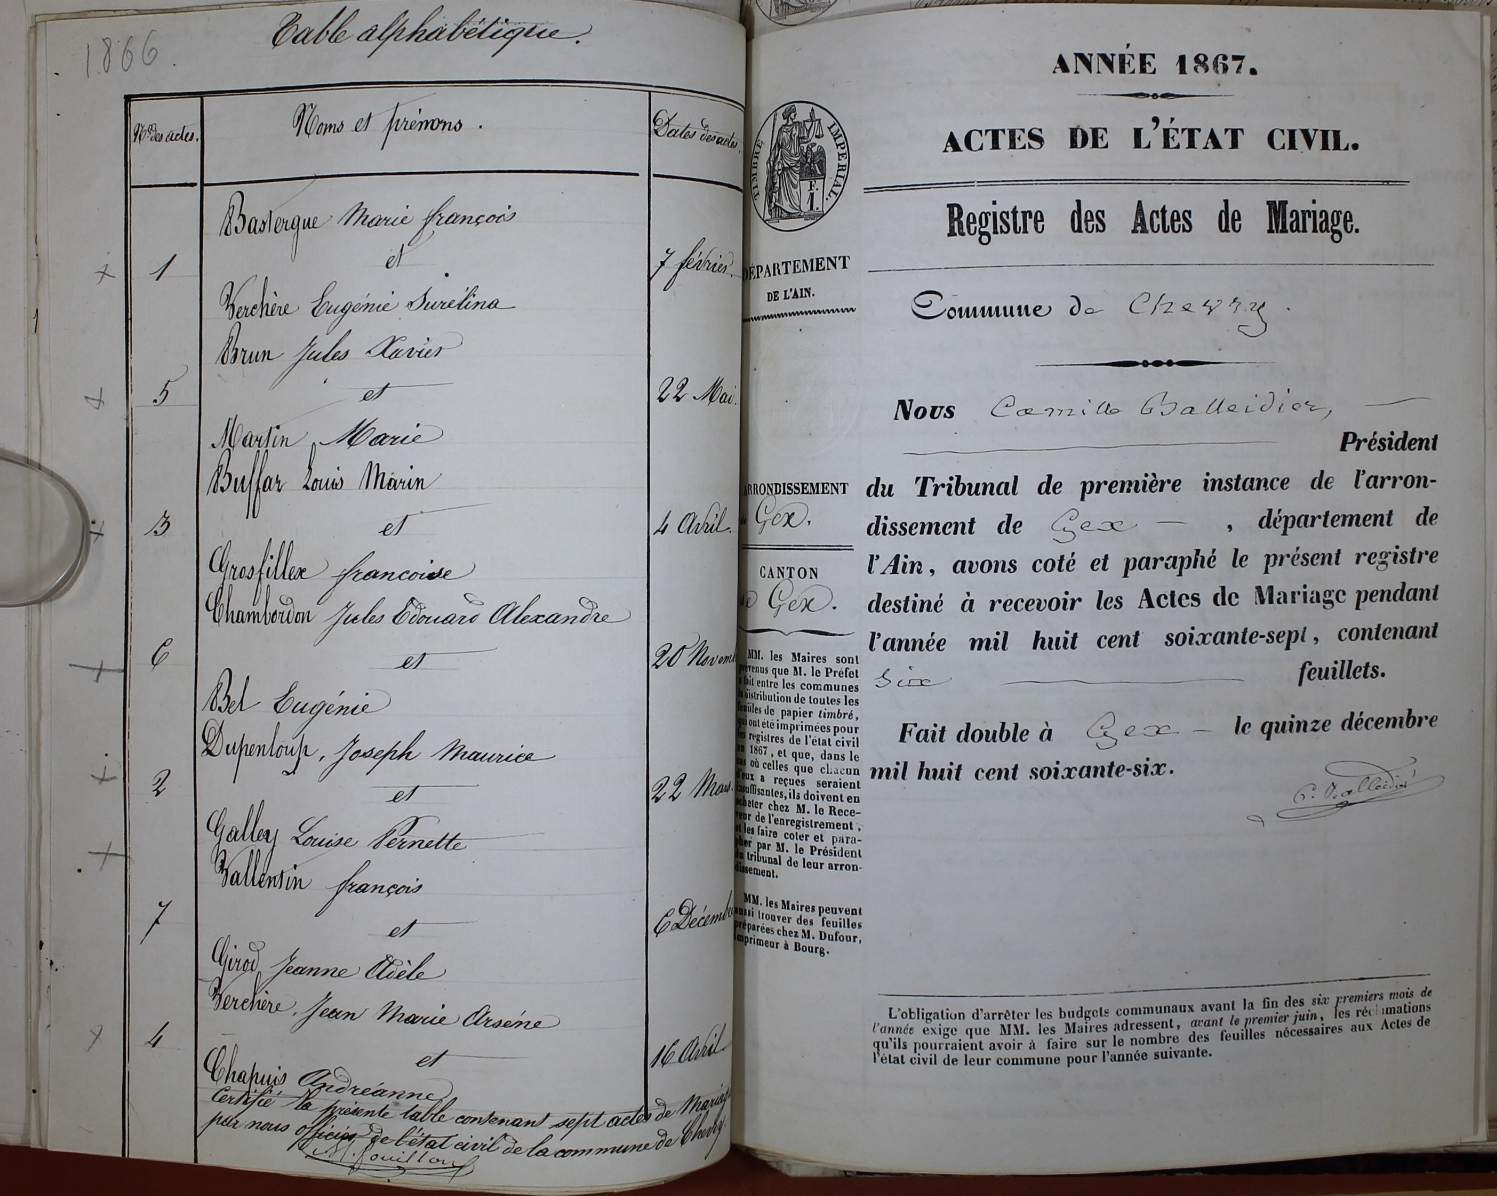 1866.
Table alphabétique.
Nos des actes.
Noms et prénoms.
Dates des actes.
Bastergue Marie françois
1 et 7 février.
Verchère Eugénie Surélina
Brun Jules Xavier
5 et 22 Mai.
Martin Marie
Buffar Louis Marin
3 et 4 Avril.
Grosfillex francoise
Chambordon Jules Edouard Alexandre
6 et 20 Novem
Bel Eugénie
Dupenloup, Joseph Maurice
2 et 22 Mars.
Galley Louise Pernette
Vallentin françois
7 et 6 Décemb
Girod Jeanne Adèle
Verchère, Jean Marie Arséne
4 et 16 Avril
Chapuis Andréanne
Certifié la présente table contenant sept actes de Mariage
par nous officier de l'état civil de la commune de Chevry.
M. fouillou
ANNÉE 1867.
ACTES DE L'ÉTAT CIVIL.
Registre des Actes de Mariage.
TIMBRE IMPÉRIAL.
F.
1.
DÉPARTEMENT
DE L'AIN.
Commune de Chevry.
ARRONDISSEMENT
Gex.
CANTON
de Gex.
MM. les Maires sont
prévenus que M. le Préfet
a fait entre les communes
la distribution de toutes les
feuilles de papier timbré,
qui ont été imprimées pour
les registres de l'état civil
en 1867, et que, dans le
cas où celles que chacun
d'eux a reçues seraient
insuffisantes, ils doivent en
acheter chez M. le Rece-
veur de l'enregistrement,
et les faire coter et para-
pher par M. le Président
du tribunal de leur arron-
dissement.
MM. les Maires peuvent
aussi trouver des feuilles
préparées chez M. Dufour,
imprimeur à Bourg.
Nous Camille Balleidier,
Président
du Tribunal de première instance de l'arron-
dissement de Gex, département de
l'Ain, avons coté et paraphé le présent registre
destiné à recevoir les Actes de Mariage pendant
l'année mil huit cent soixante-sept, contenant
six feuillets.
Fait double à Gex le quinze décembre
mil huit cent soixante-six.
C. Balleidier
L'obligation d'arrêter les budgets communaux avant la fin des six premiers mois de
l'année exige que MM. les Maires adressent, avant le premier juin, les réclamations
qu'ils pourraient avoir à faire sur le nombre des feuilles nécessaires aux Actes de
l'état civil de leur commune pour l'année suivante.